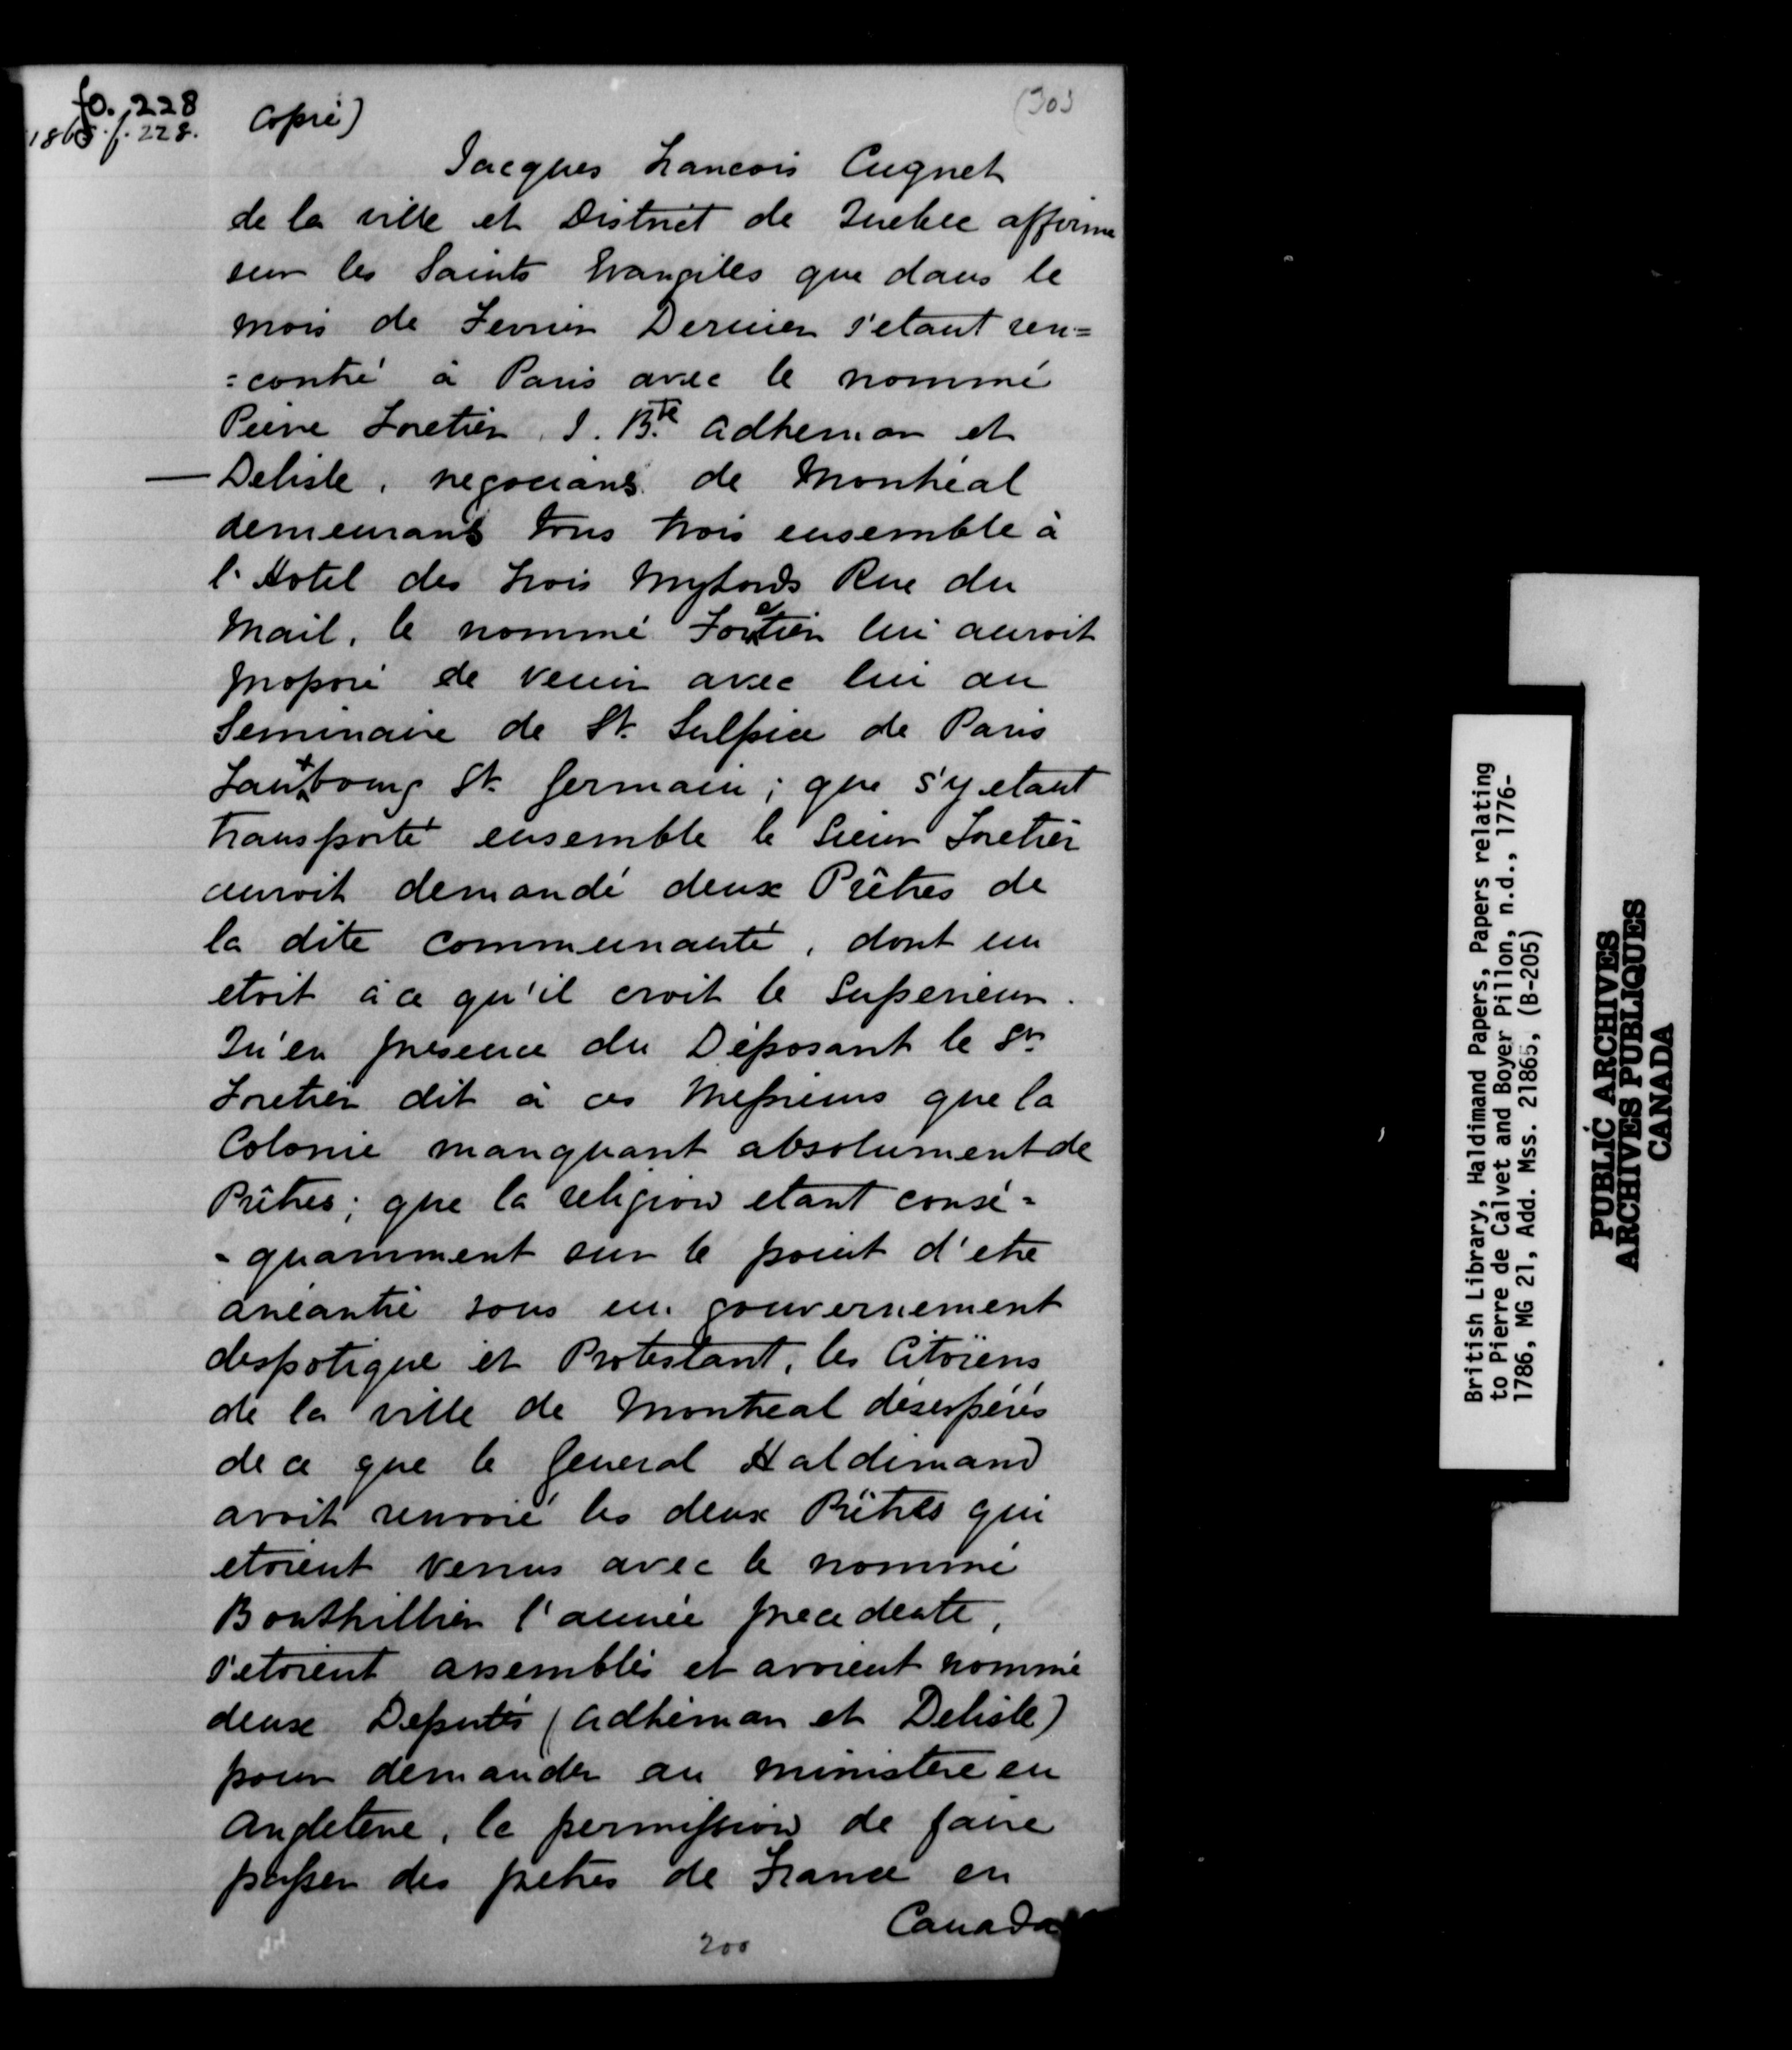 fo. 228
1865. f. 228.
Copié)
(303
Jacques Francois Cugnet
de la ville et District de Quebec affirme
sur les Saints Evangiles que dans le
mois de Fevrier Dernier s'etant ren=
=contré à Paris avec le nommé
Pierre Foretier, J. Bte. Adhemar et
— Delisle, negocians de Montréal
demeurans tous trois ensemble à
l'Hotel des trois Mylords Rue du
Mail, le nommé Foretier lui auroit
proposé de venir avec lui au
Seminaire de St. Sulpice de Paris
Fauxbourg St. Germain; que s'y etant
transporté ensemble le Sieur Foretier
auroit demandé deux Prêtres de
la dite communauté, dont un
etoit à ce qu'il croit le Superieur.
Qu'en presence du Déposant le Sr.
Foretier dit à ces Messieurs que la
Colonie manquant absolument de
Prêtres; que la religion etant consé=
=quamment sur le point d'etre
anéantie sous un gouvernement
despotique et Protestant, les Citoïens
de la ville de Montreal désespérés
de ce que le General Haldimand
avoit renvoié les deux Prêtres qui
etoient venus avec le nommé
Bouthillier l'année precedente,
s'etoient assemblés et avoient nommé
deux Deputés (Adhémar et Delisle)
pour demander au ministere en
Angleterre, la permission de faire
passer des pretres de France en
Canada
200
British Library, Haldimand Papers, Papers relating
to Pierre de Calvet and Boyer Pillon, n.d., 1776-
1786, MG 21, Add. Mss. 21865, (B-205)
PUBLIC ARCHIVES
ARCHIVES PUBLIQUES
CANADA